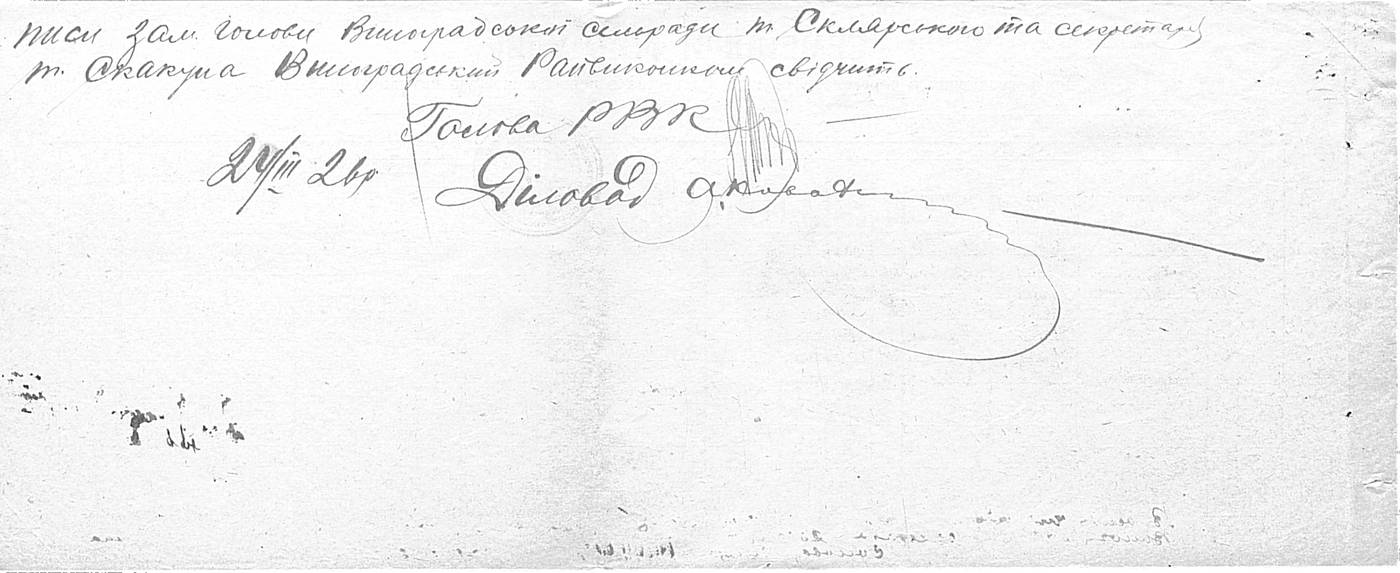 писи зам. голови Виноградської сільради т. Склярського та секретаря
т. Скакуна Виноградський Райвиконком свідчить.
Голова РВК
24/III 26р
Діловод